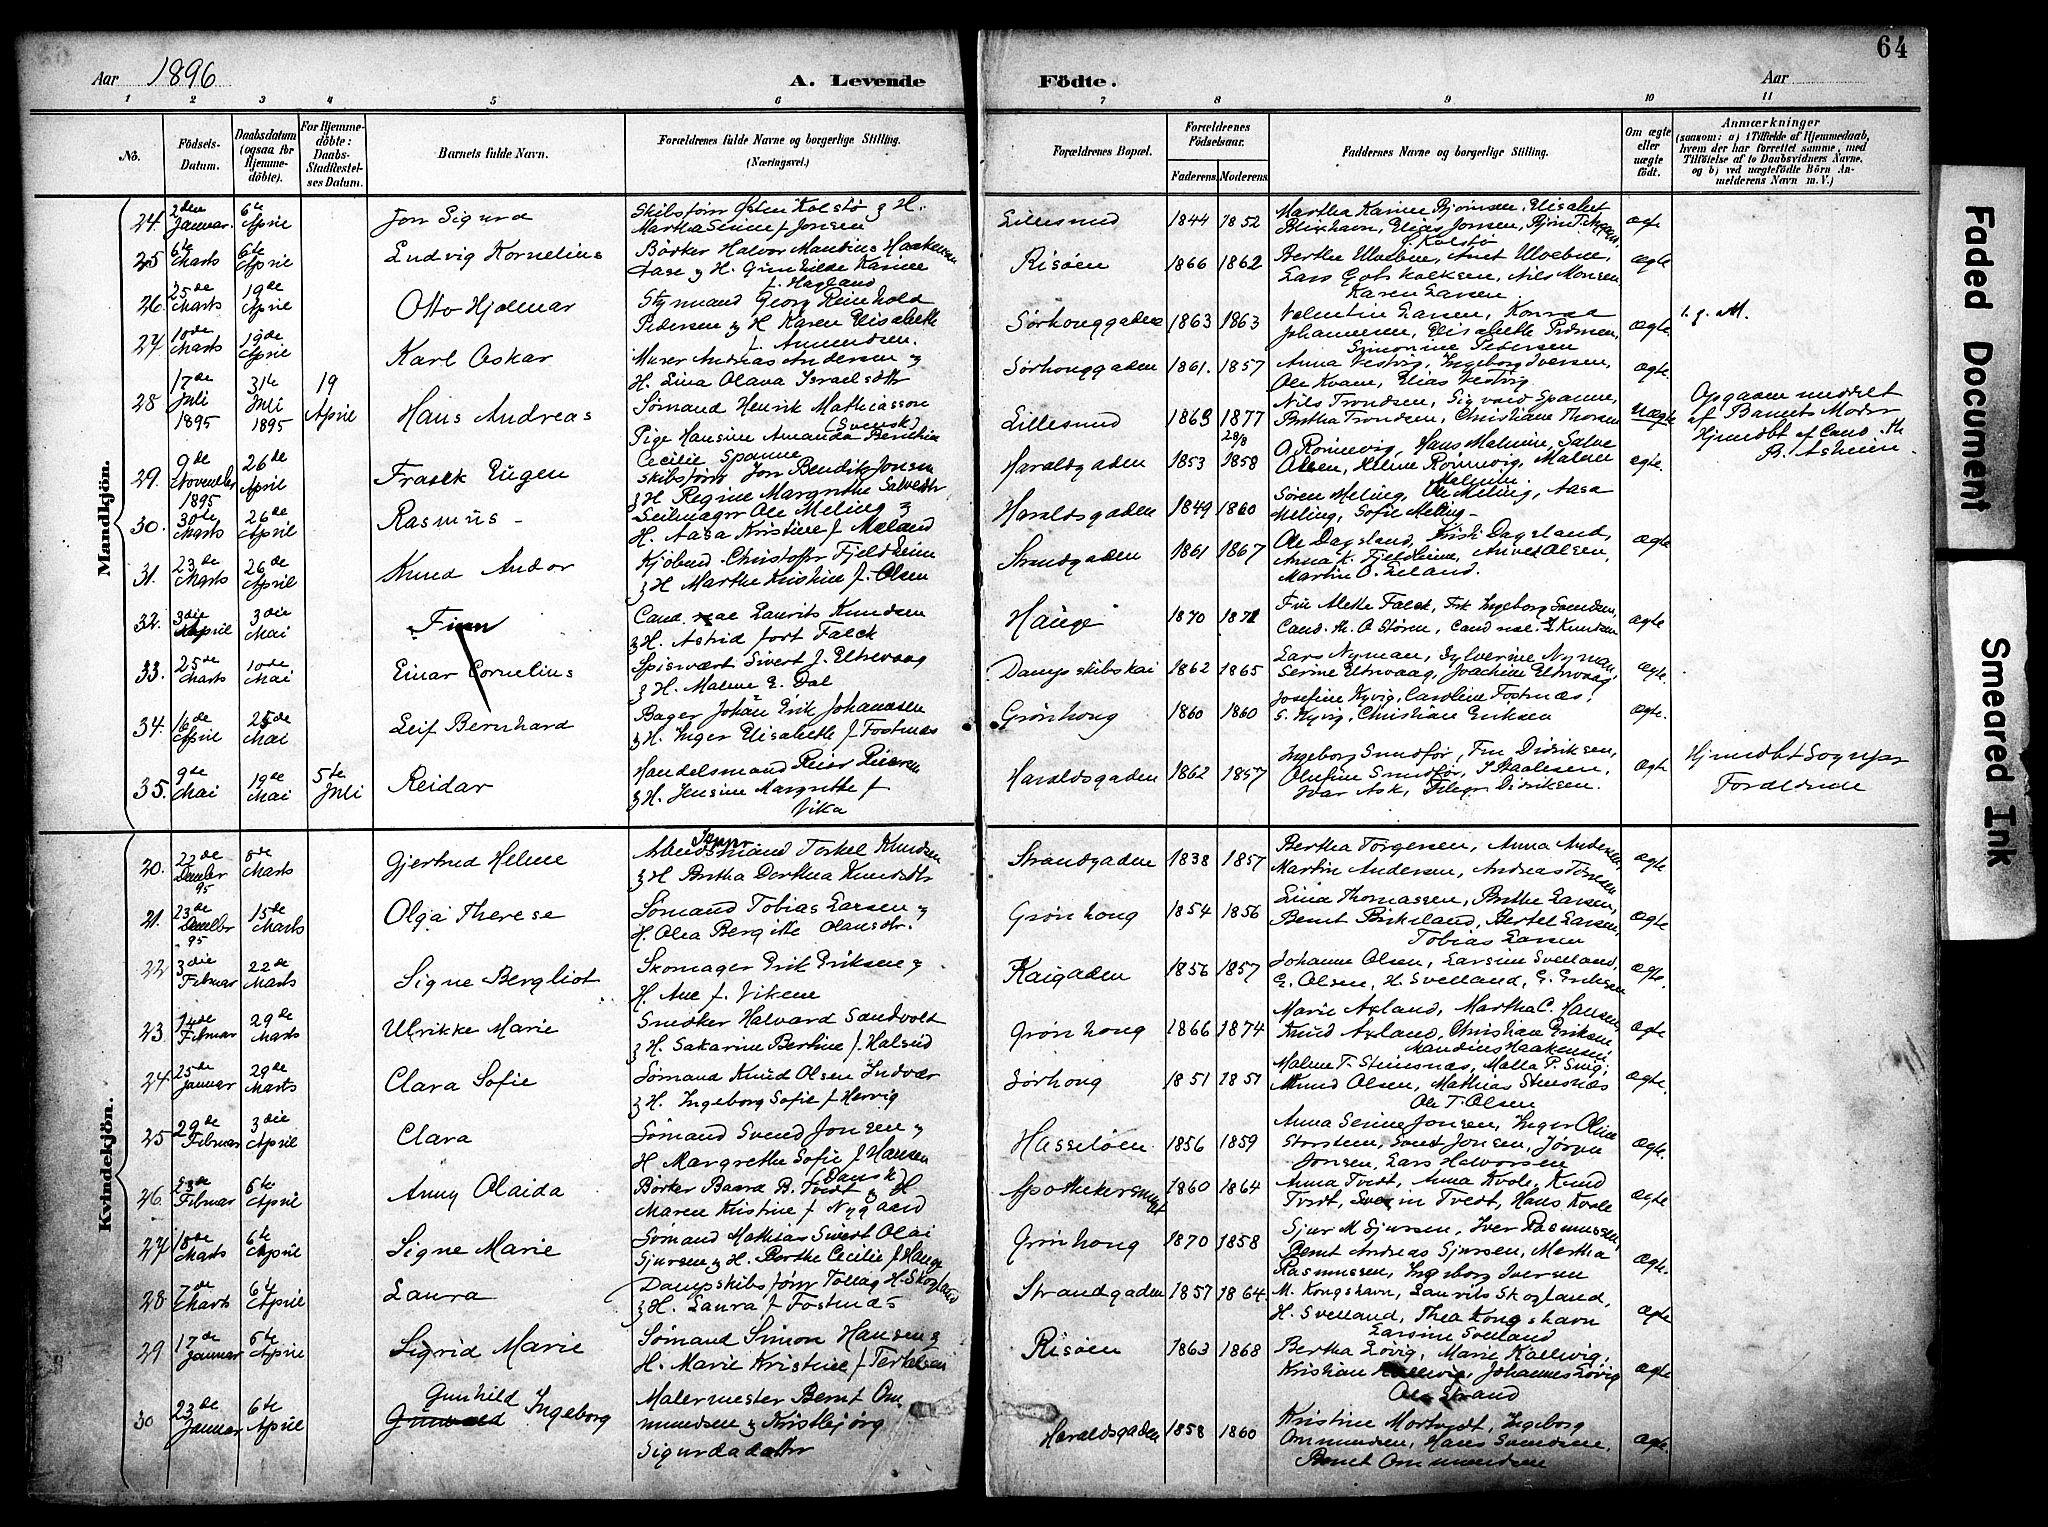 64
Aar 1896
A. Levende Födte.
Aar
1 2 3 4 5 6 7 8 9 10 11
No.
Födsels-Datum.
Daabsdatum (ogsaa for Hjemmedöbte).
For Hjemmedöbte: Daabs-Stadfæstelses Datum.
Barnets fulde Navn.
Forældrenes fulde Navne og borgerlige Stilling. (Næringsvei.)
Forældrenes Bopæl.
Forældrenes Födselsaar.
Faderens. Moderens.
Faddernes Navne og borgerlige Stilling.
Om ægte eller uægte födt.
Anmærkninger
(saasom: a) i Tilfælde af Hjemmedaab, hvem der har forrettet samme, med Tilföielse af to Daabsvidners Navne, og b) ved uægtefödte Börn Anmelderens Navn m. V.)
Mandkjön.
24. 2den Januar. 6te April Jon Sigurd Skibsførr Østen Kolstø & H. Martha Serine f Jonsen Lillesund 1844 1852 Martha Karine Bjørnsen, Elisabet Blixhavn, Elias Jonsen, Kolstø ægte
25 6te Marts 6te April Ludvig Kornelius Bødker Halvor Mandius Haakensen & H. Gunhilde Karine f. Hagland Risøen 1866 1862 Berthe Uleberg, Lars Gotskalksen, Nils Monsen Karen Larsen ægte
26. 25de Marts 19de April Otto Hjalmar Styrmand Georg Reinhold Pedersen & H Karen Elisabeth f. Amundsen. Sørhouggaden 1863 1863 Valentin Larsen, Konrad Johannesen, Elisabeth Pedersen, Simonine Petersen ægte
27 10de Marts 19de April Karl Oskar Murer Andreas Andersen & H. Lina Olava Israelsdtr Sørhouggaden 1861. 1857 Anna Vestvig, Ingeborg Iversen, Ole Kvam, Elias Vestvig ægte.
28 17de Juli 1895 31te Juli 1895 19 April Hans Andreas Sømand Henrik Mathiasson (Svensk) Pige Hansine Amanda Cecilie Spanne Lillesund 1863 1877 Nils Trondsen, Sigvald Spanne, Bertha Trondsen, Christiane Thorsen Uægte Opgaven meddelt af Barnets Moder Hjmdbt af Cand. th B. Asheim.
29. 9de November 1895 26de April Frank Eugen Skibsførr Jon Bendik Jonsen & H Regine Margrethe Salvesdtr Haraldsgaden 1853 1858 O Rønnevig, Hans Malmin, Salve Olsen, Helene Rønnevig, Malene Malmin. ægte.
30. 30te Marts 26de April Rasmus - Seilmager Ole Meling & H. Aasa Kristine f Mæland Haraldsgaden 1849 1860 Søren Meling, Ole Meling, Aasa Meling, Sofie Meling
31. 23de Marts 26de April Knud Andor Kjøbmd. Christoffer Fjeldheim & H Marthe Kristine f. Olsen Strandgaden 1861 1867 Ole Dagsland, Kristi Dagsland, Anna K. Fjeldheim, Olsen, Martin O. Eeland. ægte
32. 3die April 3die Mai Finn Cand real Laurits Knudsen & H. Astrid født Falck Hauge 1870 1871 Fru Alette Falck, Frk Ingeborg Svendsen, Cand. th. O Støren, Cand real. L Knudsen ægte
33. 25de Marts 10de Mai Einar Cornelius Spisevært Sivert J. Eltrevaag & H. Malene E. Dal Dampskibskai 1862 1865 Lars Nyman, Sylverine Nyman Serine Eltrevaag, Joachim Eltrevaag ægte.
34. 16de April 25de Mai Leif Bernhard Bager Johan Erik Johansen & H. Inger Elisabeth f Fostnæs Grønhoug 1860 1860 Josefine Kyvig, Caroline Fostnæs, S. Kyvig, Christian Eriksen ægte.
35. 9de Mai 19de Mai 5te Juli Reidar Handelsmand Peder & H. Jensine Margrethe f Vika Haraldsgaden 1862 1857 Ingeborg Sundfør, Fru Didriksen, Olufine Sundfør, Ivar Ask, Didriksen. ægte Hjmdbt Sognepr Foraldrende
Kvindekjön.
20. 22de Decbr 95 8de Marts Gjertrud Helene Arbeidsmand Torkel Knudsen & H Bertha Dorthea Knudsdtr Strandgaden 1838 1857 Bertha Torgersen, Anna Andersen, Martin Andersen, Andreas Tørresen ægte
21. 23de Decbr 95 15de Marts Olga Therese Sømand Tobias Larsen & H. Olea Bergitte Olausdtr. Grønhoug 1854 1856 Lina Thomassen, Berthe Larsen, Bernt Birkeland, Bertel Larsen, Tobias Larsen ægte
22 3die Februar 22de Marts Signe Bergliot Skomager Erik Eriksen & H. Ane f. Viken Kaigaden 1856 1857 Johanne Olsen, Larsine Svelland, E. Olsen, H. Svelland, E. Eriksen ægte.
23. 14de Februar 29de Marts Ulrikke Marie Snedker Halvard Sandvold & H. Sakarine Bertine f. Halseid Grønhoug 1866 1874 Marie Axland, Martha C. Hansen, Knud Axland, Christian Eriksen Mandius Haakensen ægte
24 25de Januar 29de Marts Clara Sofie Sømand Knud Olsen Indvær & H. Ingeborg Sofie f Hervig Sørhoug 1851 1851 Malene T. Steinsnæs, Malla P. Snig, Knud Olsen, Mathias Steinsnæs Ole T. Olsen ægte.
25 29de Februar 3die April Clara Sømand Svend Jonsen & H Margrethe Sofie f Hansen (Dansk) Hasseløen 1856 1859 Anna Serine Jonsen, Inger Oline Storsteen, Svend Jonsen, Jørgen Jonsen, Lars Halvorsen ægte.
26 23de Februar 6te April Anny Olaida Bødker Baard B. Tvedt & H Maren Kristine f Nygaard Apothekersmuget 1860 1864 Anna Tvedt, Anna Kvale, Knud Tvedt, Svein Tvedt, Hans Kvale ægte
27 18de Marts 6te April Signe Marie Sømand Mathias Sivert Olai Sjursen & H. Berthe Cecilie f Hauge Grønhoug 1870 1858 Sjur M Sjursen, Iver Rasmussen, Bernt Andreas Sjursen, Martha Rasmussen, Ingeborg Iversen ægte.
28 7de Marts 6te April Laura Dampskibsførr Tollag H. Skogland & H. Laura f Fostnæs Strandgaden 1857 1864 M. Kongshavn, Laurits Skogland, H. Svelland, Thea Kongshavn Larsine Svelland ægte
29 17de Januar 6te April Sigrid Marie Sømand Simon Hansen & H. Marie Kristine f Terkelsen Risøen 1863 1868 Bertha Løvig, Marie Kallevig, Kristian Kallevig, Johannes Løvig Ole Strand ægte
30 23de Januar 6te April Gunhild Ingeborg Malermester Bernt Ommundsen & Kristbjørg Sigurdadatter Haraldsgaden 1858 1860 Kristine Mortvedt, Ingeborg Ommundsen, Hans Svendsen, Bernt Ommundsen ægte.
Faded Document
Smeared Ink